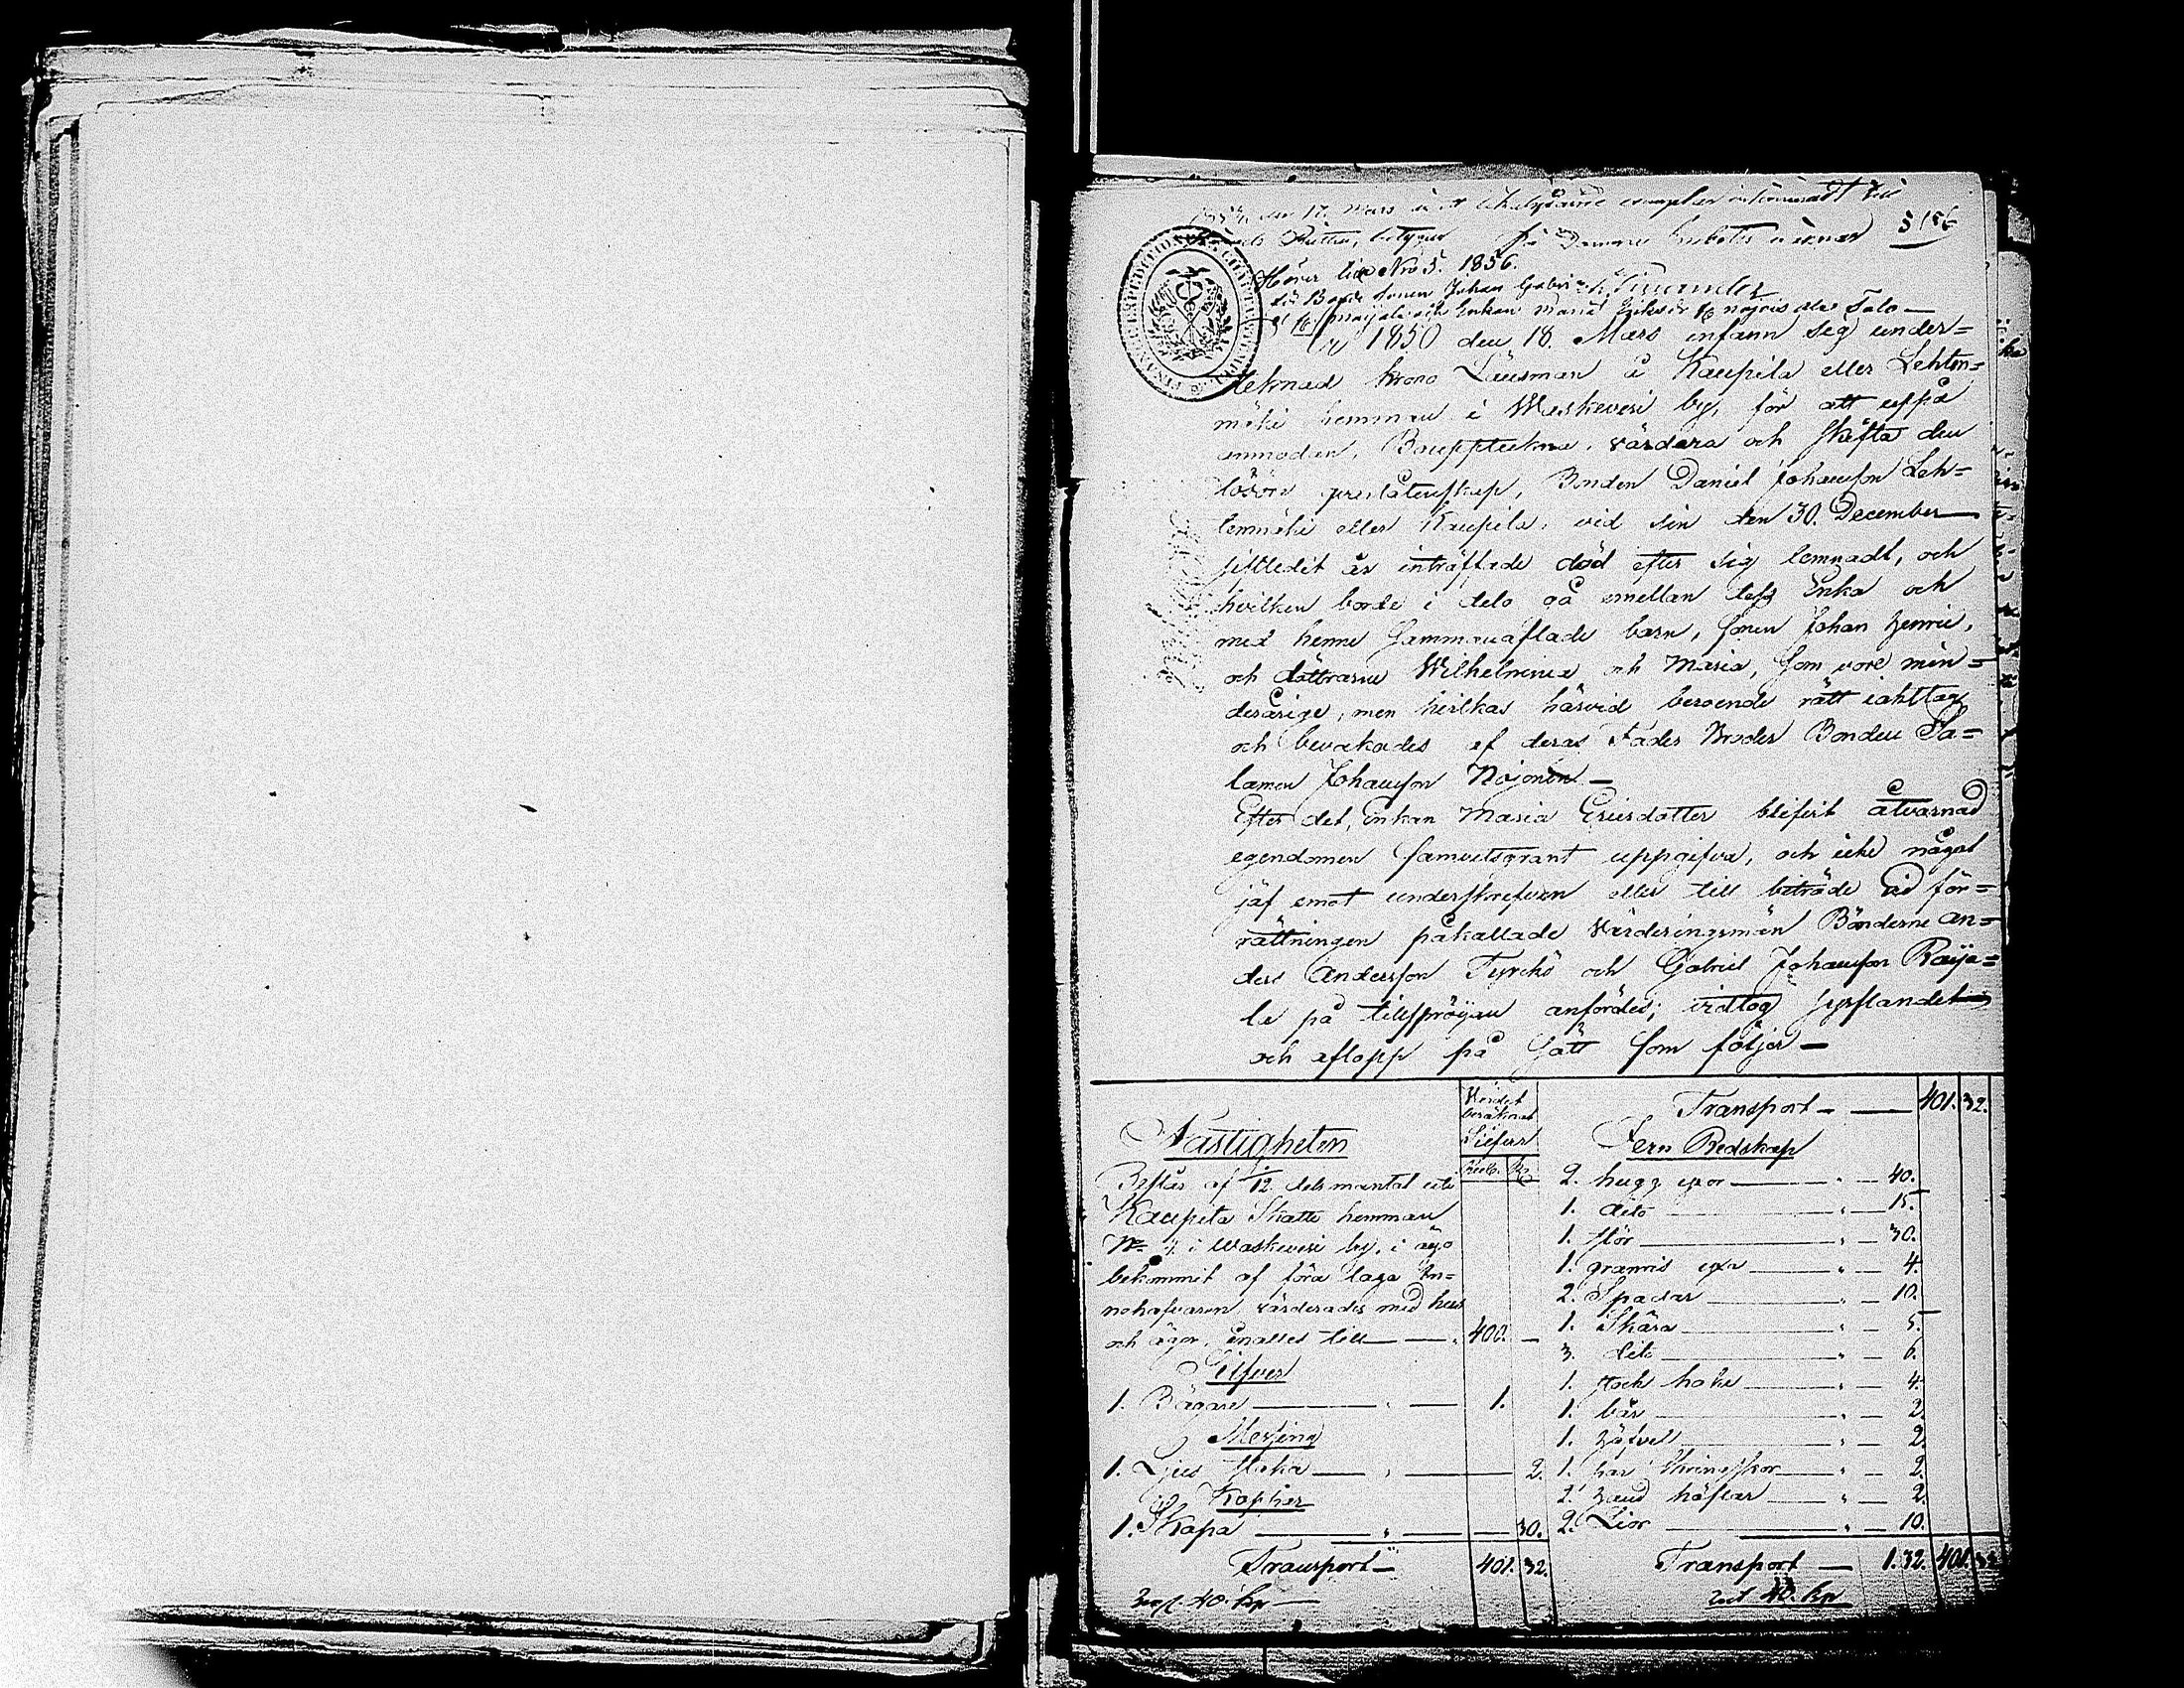 den 17. Mars
Rätten, betygar På Domare Embetets vägnar § 156
Hörer till Nro 5. 1856.
Bonde sonen Johan Gabriel
Enkan Maria
År 1850 den 18. Mars infann sig under=
teknad krono Länsman å Kaupila eller Lehton=
mäki hemman i Waskivesi by, för att uppå
anmodan, Bouppteckna, värdera och skifta den
lösöre qvarlåtenskap, Bonden Daniel Johansson Leh=
tomäki eller Kaupila, vid sin den 30. December
sittledit år inträffade död efter sig lemnadt, och
hvilken borde i delo gå emellan dess Enka och
med henne sammanaflade barn, sonen Johan Henric,
och döttrarne Wilhelmina och Maria, som vore min=
derårige, men hvilkas härvid beroende rätt iakttogs
och bevakades af deras Fader Broder Bonden Sa=
lamon Johansson Nojonen —
Efter det, Enkan Maria Ericsdotter blifvit åtvarnad
egendomen samvetsgrant uppgifva, och icke något
jäf emot underskrefven eller till biträde vid för=
rättningen påkallade Värderingsmän Bönderne An=
ders Andersson Tyrckö och Gabriel Johansson Raija=
la på tillfrågan anfördes; vidtog sysslandet
och aflopp på sätt som följer —
Värdet
beräknat
Silfver
Rub. K.
Fastigheten
Består af 1/12 dels mantal uti
Kaupila Skatte hemman
No 4 i Waskivesi by, i
bekommit af förra laga In=
nehafvaren värderades med hus
och ägor, enalles till — " 400. —
Silfver
1. Bägare — " — 1.
Messing
1. Ljus staka — " — 2.
Koppar
1. Skopa — " — 30.
Transport — 401. 32.
40. kp —
Transport — 401. 32.
Jern Redskap
2. hugg yxor — " — 40.
1. dito — " — 15.
1. stör — " — 30.
1. yxa — " — 4.
2. Spadar — " — 10.
1. Skära — " — 5.
3. dito — " — 6.
1. stock hake — " — 4.
1. bår — " — 2.
1. häfvel — " — 2.
1. par — " — 2.
2. — " — 2.
2. Lior — " — 10.
Transport — 1. 32. 401. 32.
40. kp